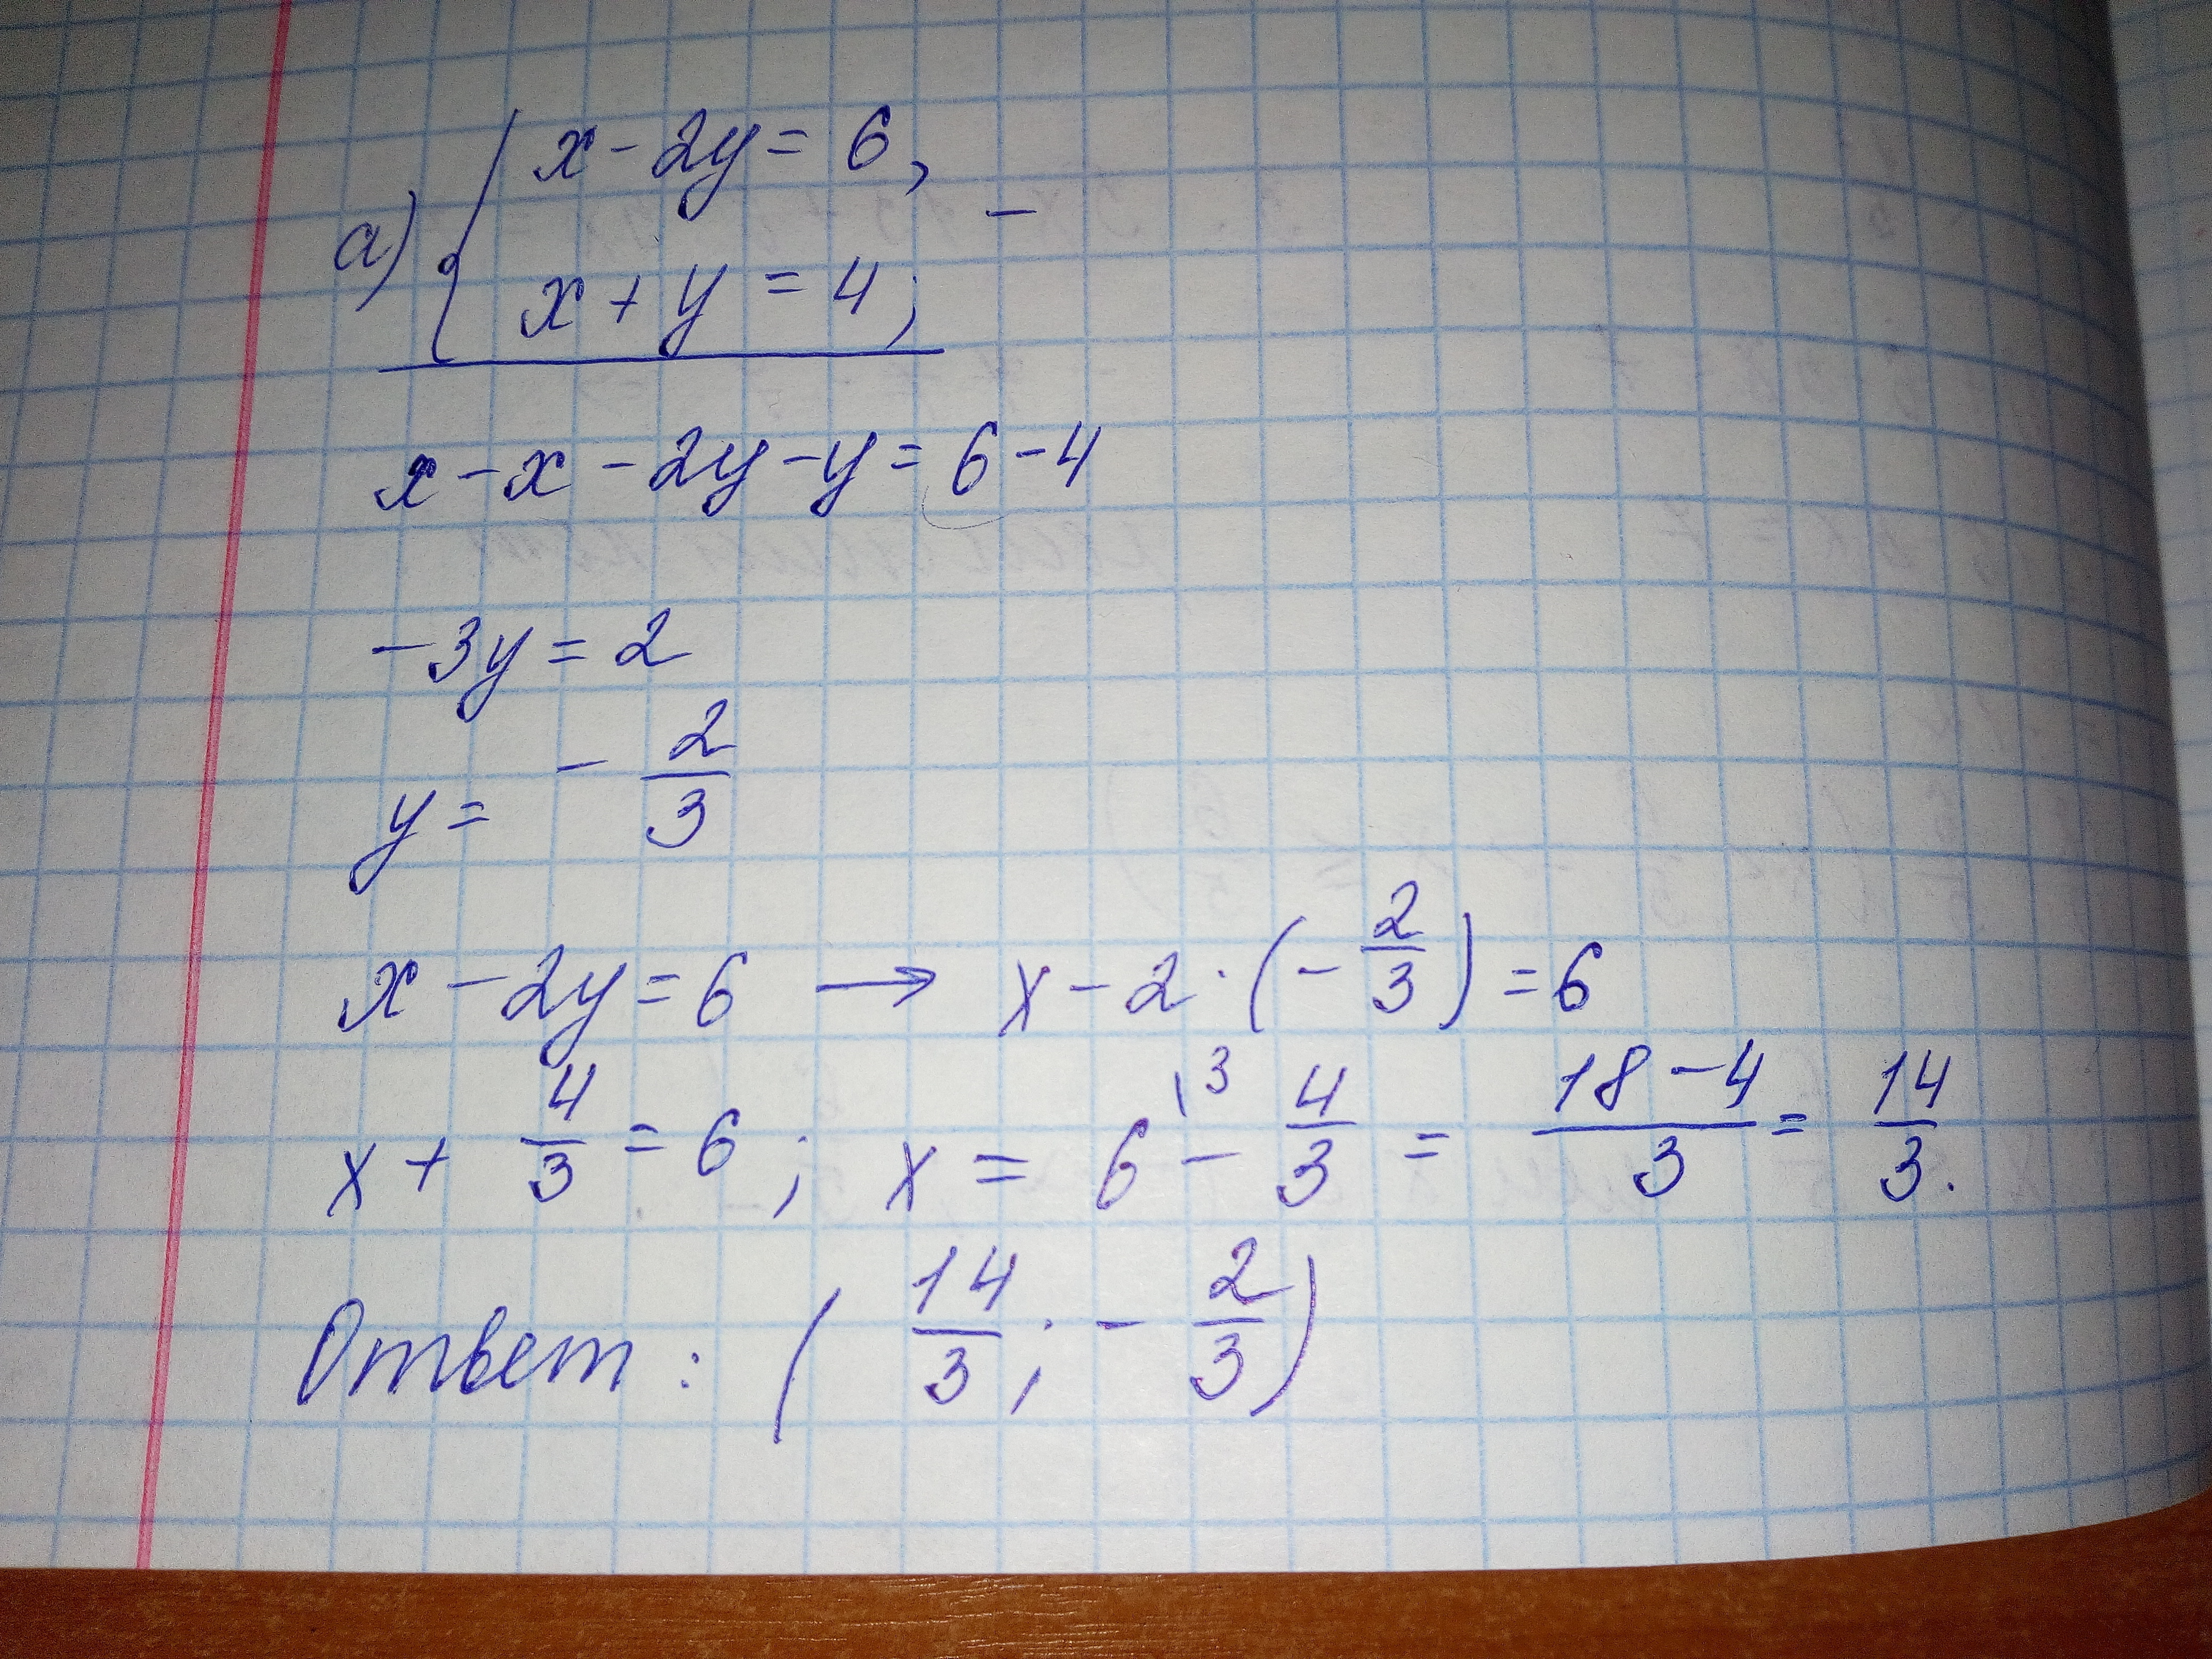 а) { x - 2y = 6, -
x + y = 4;
x - x - 2y - y = 6 - 4
-3y = 2
y = - 2/3
x - 2y = 6 → x - 2 · (- 2/3) = 6
x + 4/3 = 6; x = 6\3 - 4/3 = 18 - 4/3 = 14/3.
Ответ: ( 14/3 ; - 2/3 )